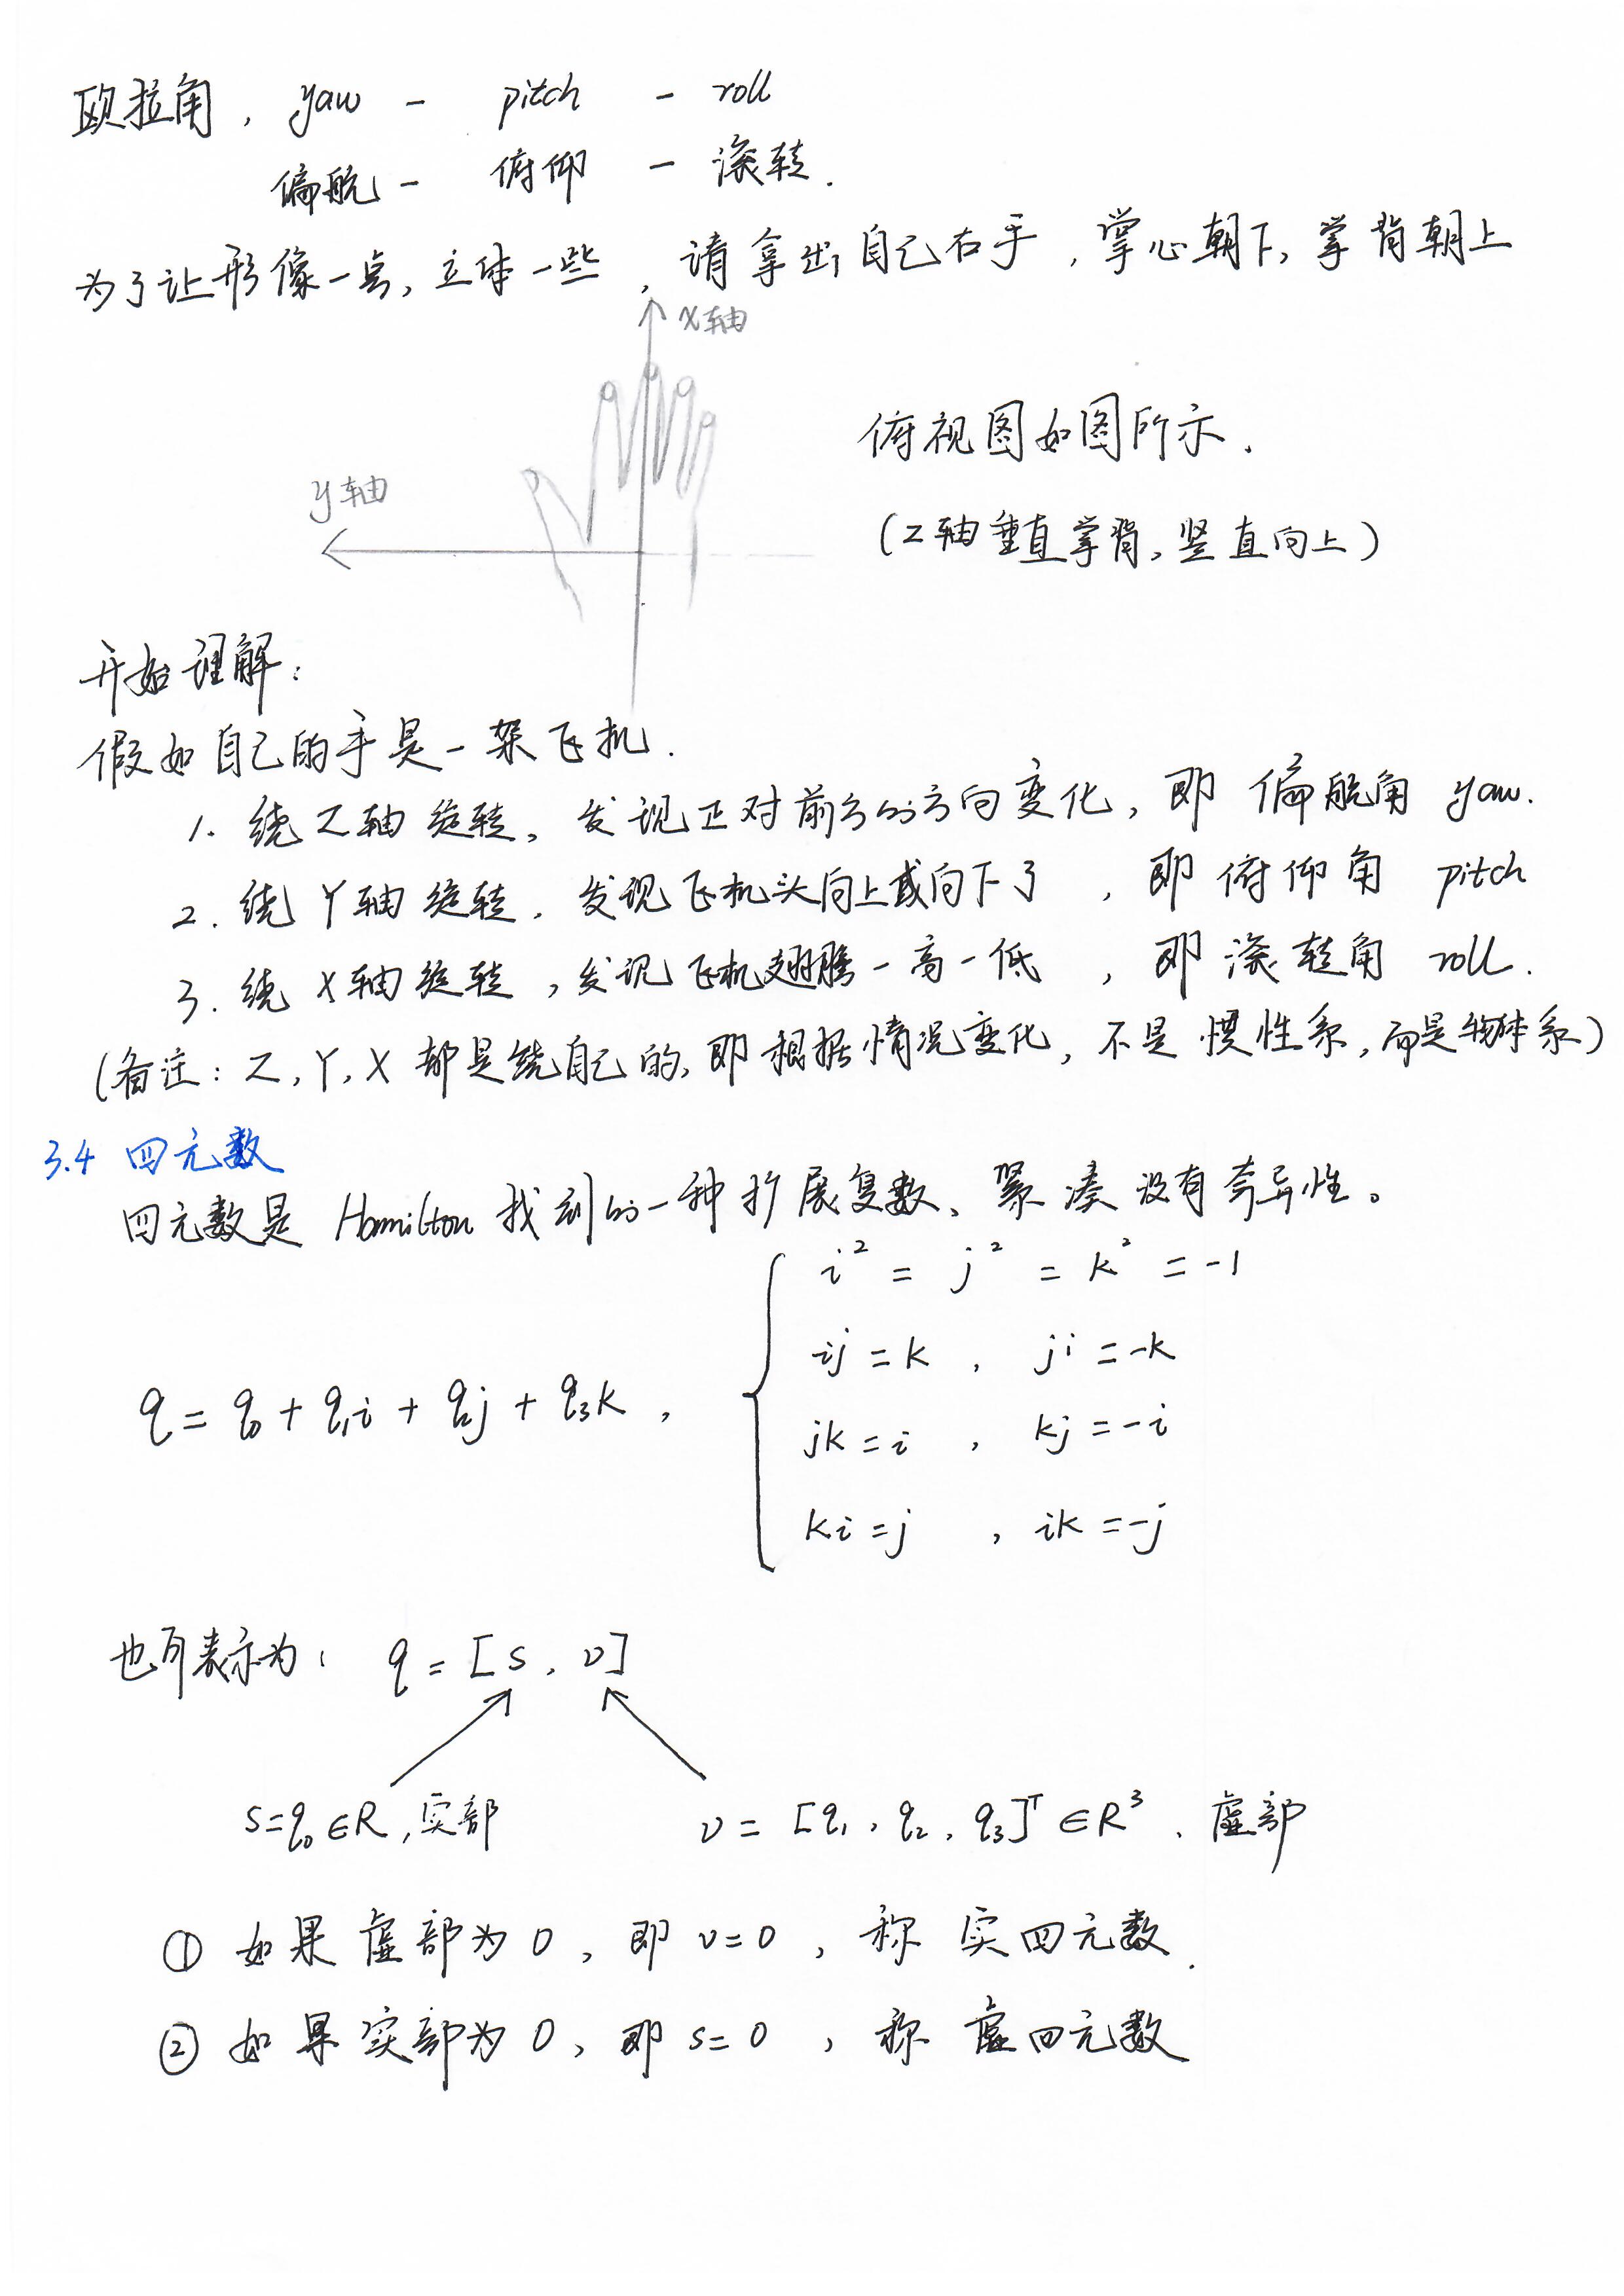 欧拉角, yaw - pitch - roll
偏航 - 俯仰 - 滚转.
为了让形像一点, 立体一些, 请拿出自己右手, 掌心朝下, 掌背朝上
x轴
俯视图如图所示.
y轴
(Z轴垂直掌背, 竖直向上)
开始理解:
假如自己的手是一架飞机.
1. 绕Z轴旋转, 发现正对前方的方向变化, 即 偏航角 yaw.
2. 绕Y轴旋转, 发现飞机头向上或向下了, 即 俯仰角 pitch
3. 绕X轴旋转, 发现飞机翅膀一高一低, 即 滚转角 roll.
(备注: Z, Y, X 都是绕自己的, 即根据情况变化, 不是惯性系, 而是物体系)
3.4 四元数
四元数是 Hamilton 找到的一种扩展复数、紧凑没有奇异性。
i² = j² = k² = -1
ij = k , ji = -k
q = q₀ + q₁i + q₂j + q₃k ,
jk = i , kj = -i
ki = j , ik = -j
也可表示为: q = [s, v]
s = q₀ ∈ R, 实部 v = [q₁, q₂, q₃]ᵀ ∈ R³, 虚部
① 如果虚部为0, 即 v=0, 称 实四元数.
② 如果实部为0, 即 s=0, 称 虚四元数